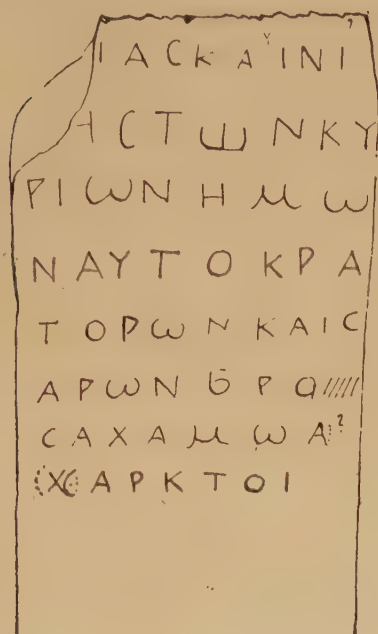 ΙΑCΚΑΙΝΙ
ΗCΤωΝΚΥ
ΡΙωΝΗΜω
ΝΑΥΤΟΚΡΑ
ΤΟΡωΝΚΑΙC
ΑΡωΝϬΡΟ/////
CΑΧΑΜωΑ?
ΧΑΡΚΤΟΙ